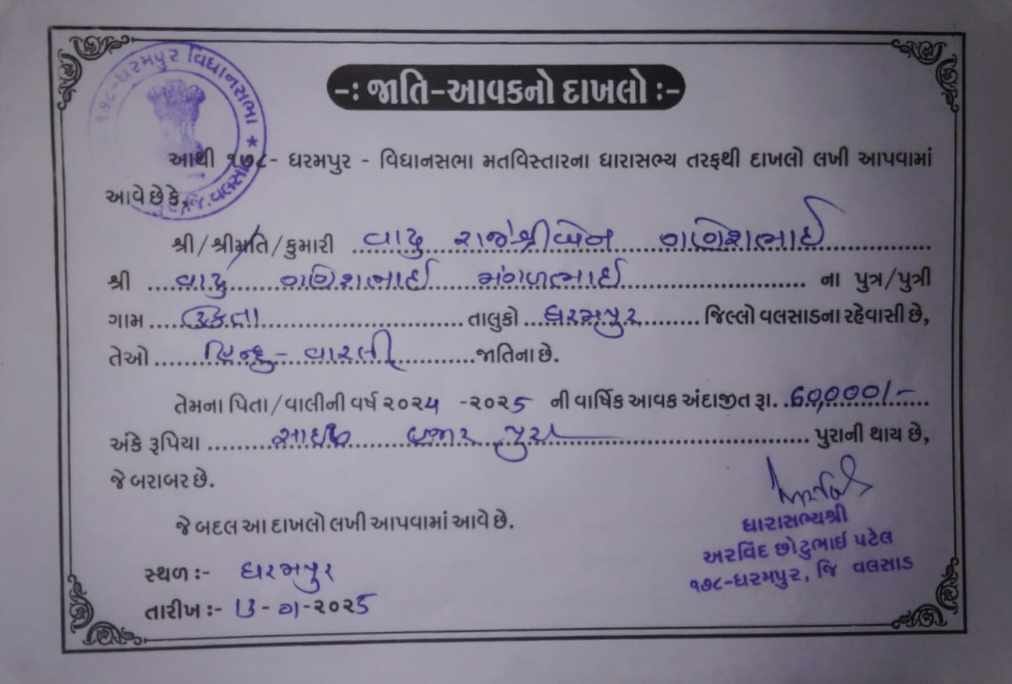 ૧૭૮-ધરમપુર વિધાનસભા * જિ.વલસાડ
-: જાતિ-આવકનો દાખલો :-
આથી ૧૭૮- ધરમપુર - વિધાનસભા મતવિસ્તારના ધારાસભ્ય તરફથી દાખલો લખી આપવામાં
આવે છે કે,
શ્રી/શ્રીમતિ/કુમારી વાઢુ રાજેશ્રીબેન ગણેશભાઈ
શ્રી વાઢુ ગણેશભાઈ મંગળભાઈ ના પુત્ર/પુત્રી
ગામ તાલુકો ધરમપુર જિલ્લો વલસાડના રહેવાસી છે,
તેઓ હિન્દુ - વારલી જાતિના છે.
તેમના પિતા/વાલીની વર્ષ ૨૦૨૪ -૨૦૨૫ ની વાર્ષિક આવક અંદાજીત રૂા. 60,000/-
અંકે રૂપિયા સાઇઠ હજાર પુરા પુરાની થાય છે,
જે બરાબર છે.
જે બદલ આ દાખલો લખી આપવામાં આવે છે.
ધારાસભ્યશ્રી
અરવિંદ છોટુભાઈ પટેલ
૧૭૮-ધરમપુર, જિ વલસાડ
સ્થળ :- ધરમપુર
તારીખ :- 13 - ૭ -૨૦૨૫